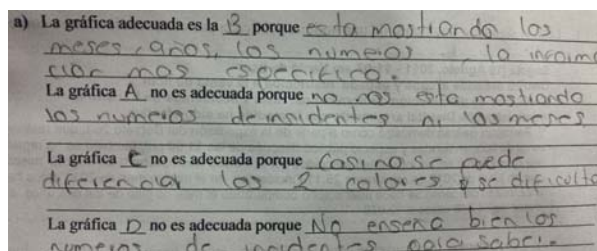 a) La gráfica adecuada es la B porque esta mostrando los
meses, años, los numeros la informa
cion mas especifica.
La gráfica A no es adecuada porque no nos esta mostrando
los numeros de insidentes ni los meses
La gráfica C no es adecuada porque Casi no se puede
diferenciar los 2 colores y se dificulta
La gráfica D no es adecuada porque No enseña bien los
numeros de insidentes para saber.